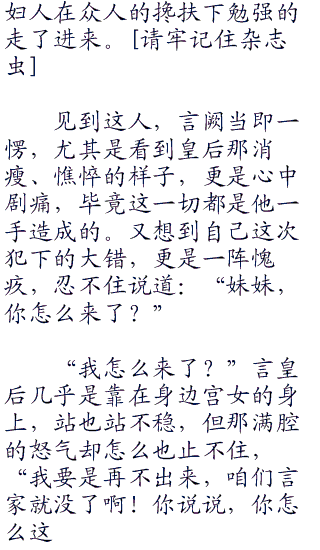 妇人在众人的搀扶下勉强的
走了进来。[请牢记住杂志
虫]
见到这人，言阙当即一
愣，尤其是看到皇后那消
瘦、憔悴的样子，更是心中
剧痛，毕竟这一切都是他一
手造成的。又想到自己这次
犯下的大错，更是一阵愧
疚，忍不住说道：“妹妹，
你怎么来了？”
“我怎么来了？”言皇
后几乎是靠在身边宫女的身
上，站也站不稳，但那满腔
的怒气却怎么也止不住，
“我要是再不出来，咱们言
家就没了啊！你说说，你怎
么这